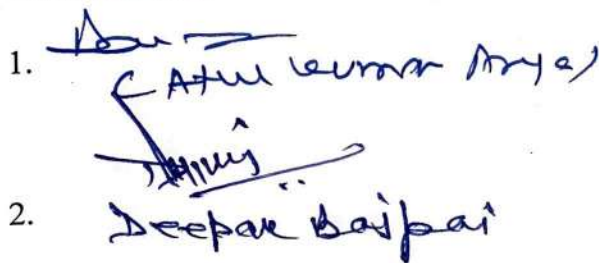 1.
(Atul Kumar Arya)
2.
Deepak Bajpai